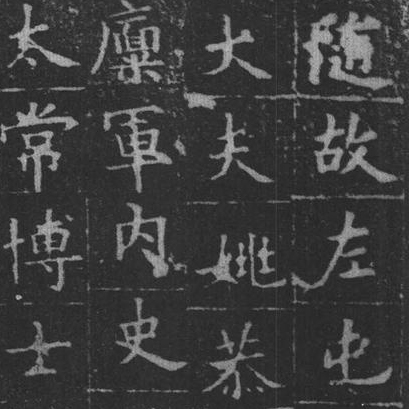 随故左屯
大夫姚恭
廩軍内史
太常博士